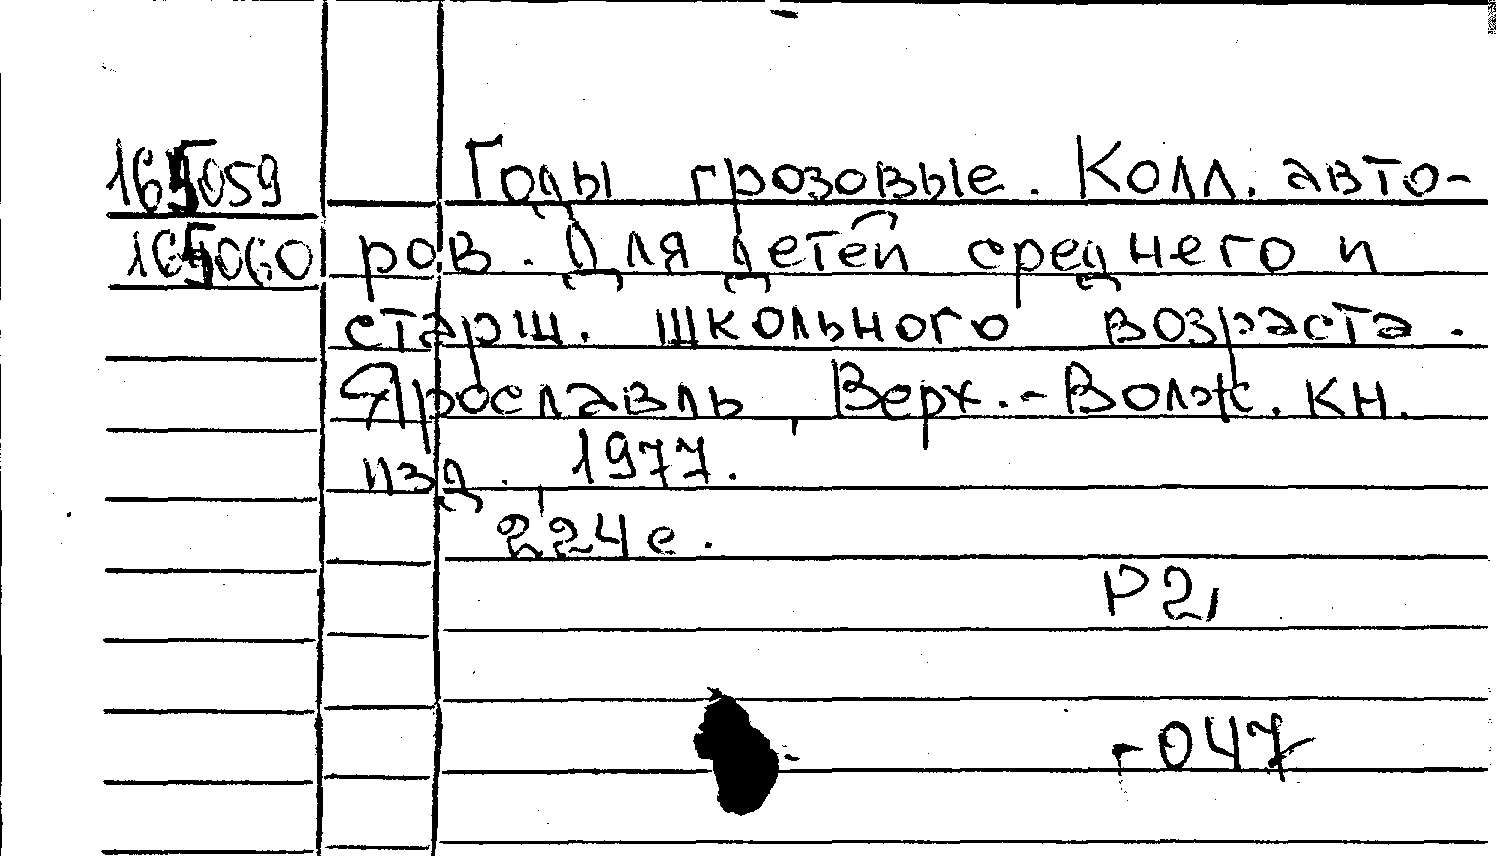 165059 Годы грозовые. Колл. авто-
165060 ров. Для детей среднего и
старш. школьного возраста.
Ярославль, Верх.-Волж. кн.
изд., 1977.
224 с.
Р2,
-047